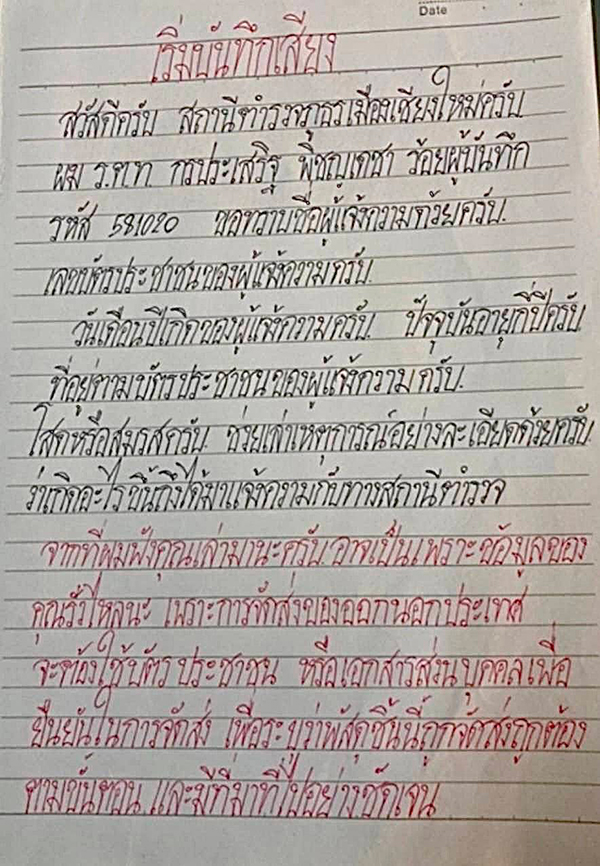 Date
เริ่มบันทึกเสียง
สวัสดีครับ สถานีตำรวจภูธรเมืองเชียงใหม่ครับ
ผม ร.ต.ท. กรประเสริฐ พิชญเดชา ร้อยผู้บันทึก
รหัส 581020 ขอทราบชื่อผู้แจ้งความด้วยครับ.
เลขบัตรประชาชนของผู้แจ้งความครับ.
วันเดือนปีเกิดของผู้แจ้งความครับ. ปัจจุบันอายุกี่ปีครับ
ที่อยู่ตามบัตรประชาชนของผู้แจ้งความครับ.
โสดหรือสมรสครับ. ช่วยเล่าเหตุการณ์อย่างละเอียดด้วยครับ.
ว่าเกิดอะไรขึ้นถึงได้มาแจ้งความกับทางสถานีตำรวจ
จากที่ผมฟังคุณเล่ามานะครับ อาจเป็นเพราะข้อมูลของ
คุณรั่วไหลนะ เพราะการจัดส่งของออกนอกประเทศ
จะต้องใช้บัตรประชาชน หรือเอกสารส่วนบุคคลเพื่อ
ยืนยันในการจัดส่ง เพื่อระบุว่าพัสดุชิ้นนี้ถูกจัดส่งถูกต้อง
ตามขั้นตอน และมีที่มาที่ไปอย่างชัดเจน